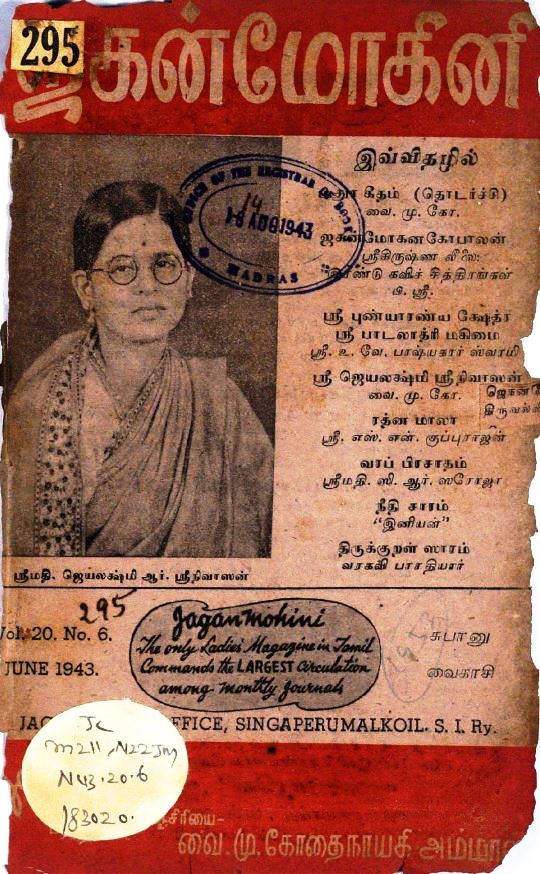 295
ஜகன்மோகினி
இவ்விதழில்
கீதம் (தொடர்ச்சி)
வை. மு. கோ.
ஜகன்மோகனகோபாலன்
ஸ்ரீகிருஷ்ண லீலை:
இரண்டு கவிச் சித்திரங்கள்
பி. ஸ்ரீ.
ஸ்ரீ புண்யாரண்ய க்ஷேத்ர
ஸ்ரீ பாடலாத்ரி மகிமை
ஸ்ரீ. உ. வே. பாஷ்யகார் ஸ்வாமி
ஸ்ரீ ஜெயலக்ஷ்மி ஸ்ரீநிவாஸன்
வை. மு. கோ.
ரத்ன மாலா
ஸ்ரீ. எஸ். என். குப்புராஜன்
வரப் பிரசாதம்
ஸ்ரீமதி. ஸி. ஆர். ஸரோஜா
நீதி சாரம்
"இனியன்"
திருக்குறள் ஸாரம்
வரகவி பாரதியார்
OFFICE OF THE REGISTRAR OF BOOKS
14
18 AUG 1943
MADRAS
ஸ்ரீமதி. ஜெயலக்ஷ்மி ஆர். ஸ்ரீநிவாஸன்
295
Vol. 20. No. 6.
JUNE 1943.
Jagan mohini
The only Ladies' Magazine in Tamil
Commands the LARGEST Circulation
among monthly Journals
சுபானு
வைகாசி
OFFICE, SINGAPERUMALKOIL. S. I. Ry.
Jc
m211,N22Jm
N43.20.6
183020.
வை.மு.கோதைநாயகி அம்மா